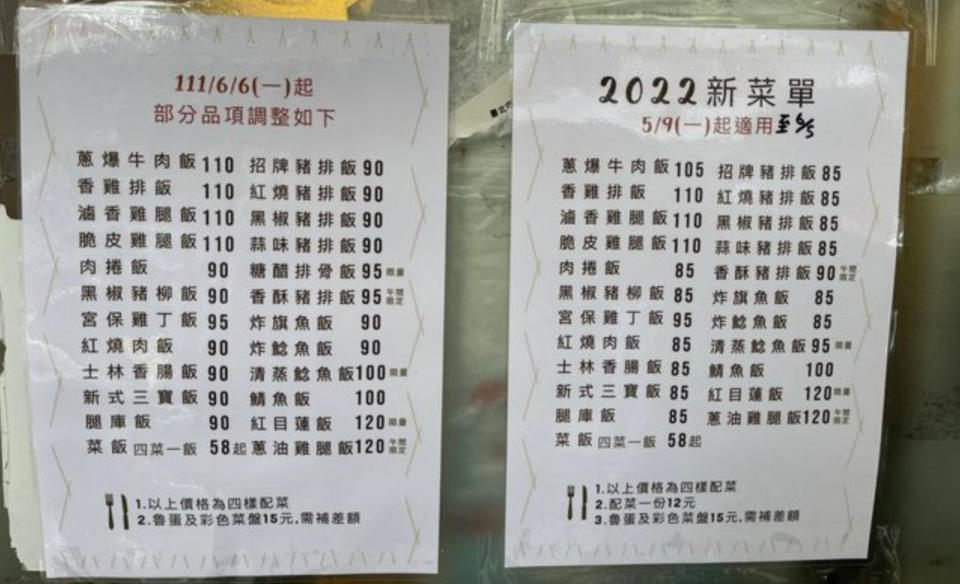 111/6/6(一)起
部分品項調整如下
蔥爆牛肉飯 110 招牌豬排飯 90
香雞排飯 110 紅燒豬排飯 90
滷香雞腿飯 110 黑椒豬排飯 90
脆皮雞腿飯 110 蒜味豬排飯 90
肉捲飯 90 糖醋排骨飯 95 限量
黑椒豬柳飯 90 香酥豬排飯 95 午間限定
宮保雞丁飯 95 炸旗魚飯 90
紅燒肉飯 90 炸鯰魚飯 90
士林香腸飯 90 清蒸鯰魚飯 100 限量
新式三寶飯 90 鯖魚飯 100
腿庫飯 90 紅目蓮飯 120 限量
菜飯 四菜一飯 58起 蔥油雞腿飯 120 午間限定
1.以上價格為四樣配菜
2.魯蛋及彩色菜盤15元,需補差額
臺北市
2022新菜單
5/9(一)起適用至
蔥爆牛肉飯 105 招牌豬排飯 85
香雞排飯 110 紅燒豬排飯 85
滷香雞腿飯 110 黑椒豬排飯 85
脆皮雞腿飯 110 蒜味豬排飯 85
肉捲飯 85 香酥豬排飯 90 午間限定
黑椒豬柳飯 85 炸旗魚飯 85
宮保雞丁飯 95 炸鯰魚飯 85
紅燒肉飯 85 清蒸鯰魚飯 95 限量
士林香腸飯 85 鯖魚飯 100
新式三寶飯 85 紅目蓮飯 120 限量
腿庫飯 85 蔥油雞腿飯 120 午間限定
菜飯 四菜一飯 58起
1.以上價格為四樣配菜
2.配菜一份12元
3.魯蛋及彩色菜盤15元,需補差額